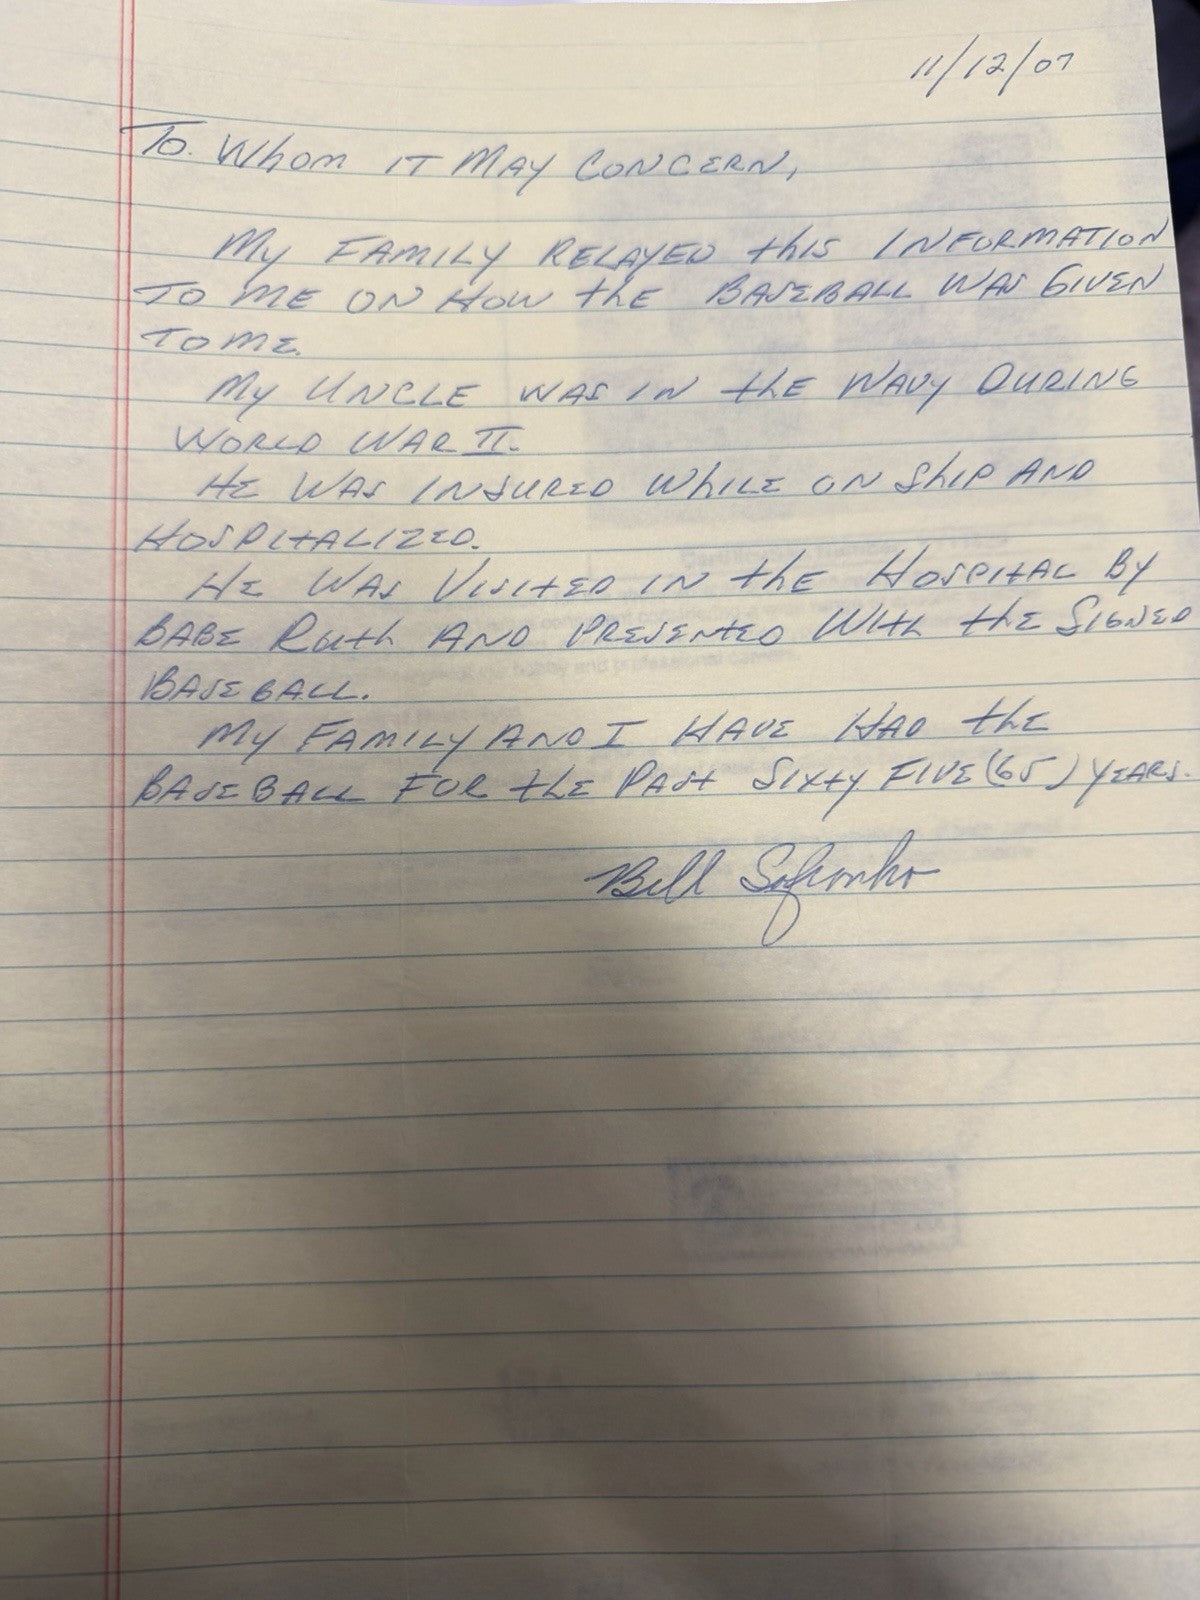 11/12/07
To Whom IT MAY CONCERN,
MY FAMILY RELAYED thIS INFORMATION
TO ME ON HOW thE BASEBALL WAS GIVEN
TO ME.
MY UNCLE WAS IN thE NAVY DURING
WORLD WAR II.
HE WAS INJURED WhILE ON ShIP AND
HOSPITALIZED.
HE WAS VISITED IN thE HOSPITAL BY
BABE Ruth AND PRESENTED WITh thE SIGNED
BASEBALL.
MY FAMILY AND I HAVE HAD thE
BASEBALL FOR thE PAST SIXTY FIVE (65) YEARS.
Bill